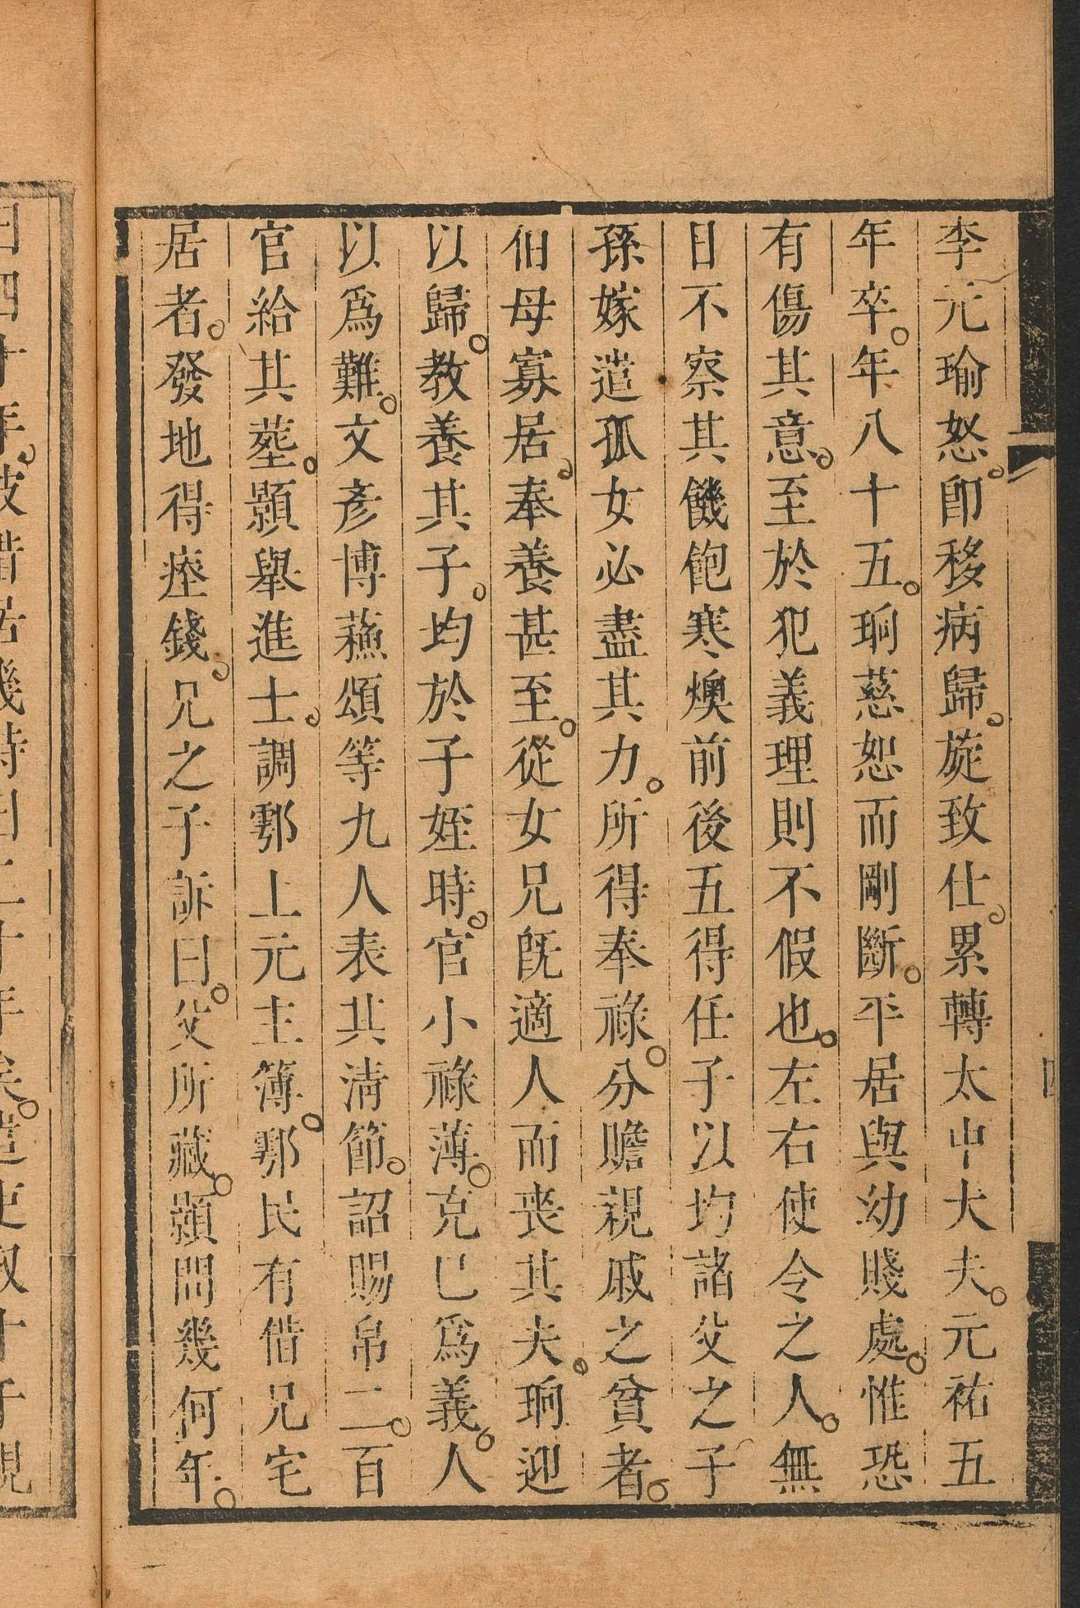 李元瑜怒。卽移病歸。旋致仕。累轉太中大夫。元祐五
年卒。年八十五。珦慈恕而剛斷。平居與幼賤處。惟恐
有傷其意。至於犯義理則不假也。左右使令之人。無
日不察其饑飽寒燠前後五得任子以均諸父之子
孫嫁遣孤女必盡其力。所得奉祿。分贍親戚之貧者。
伯母寡居。奉養甚至。從女兄旣適人而喪其夫。珦迎
以歸。敎養其子。均於子姪時。官小祿薄。克已爲義。人
以爲難。文彥博蘓頌等九人表其淸節。詔賜帛二。百
官給其塟。顥舉進士。調鄠上元主簿。鄠民有借兄宅
居者。發地得瘞錢。兄之子訴曰。父所藏。顥問幾何年。
曰四十年。彼借居幾時曰二十年矣。遣吏取十千視